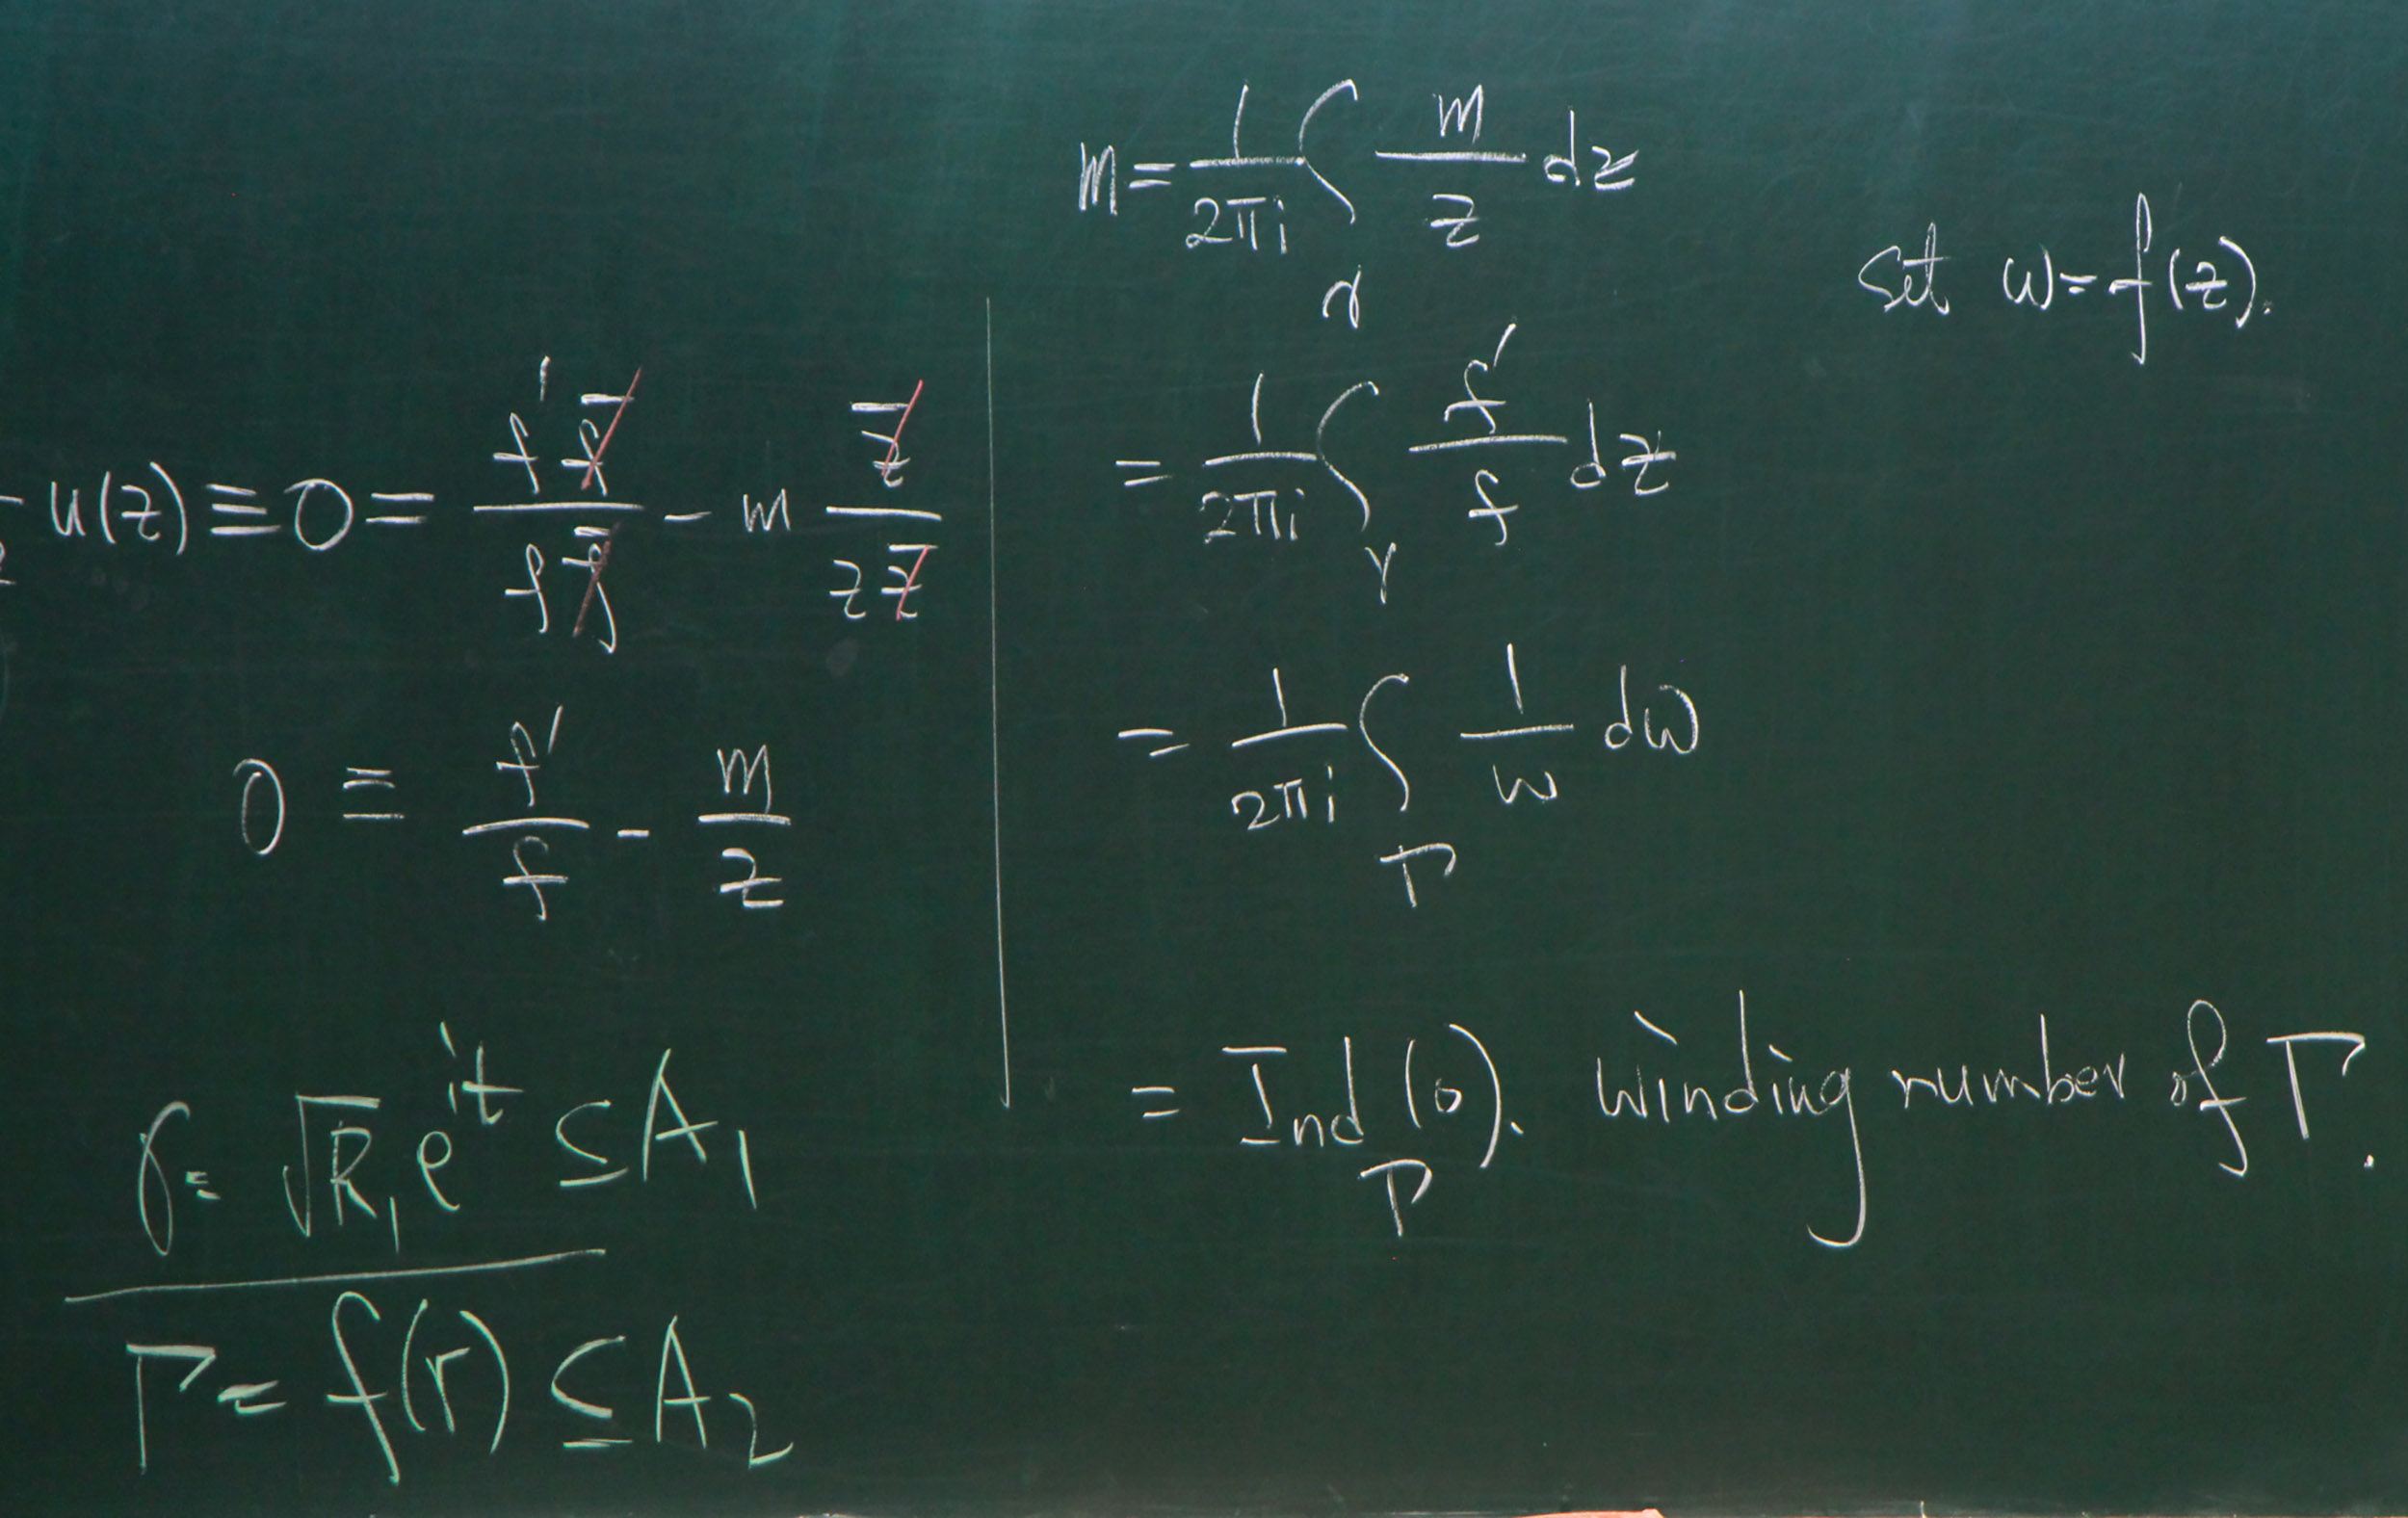 u(z) ≡ 0 = f' f̄ / f f̄ - m z̄ / z z̄
0 ≡ f' / f - m / z
γ = √R₁ e^{it} ⊆ A₁
Γ = f(γ) ⊆ A₂
m = 1 / 2πi ∫_γ m / z dz
set w = f(z).
= 1 / 2πi ∫_γ f' / f dz
= 1 / 2πi ∫_Γ 1 / w dw
= Ind_Γ (0). winding number of Γ.